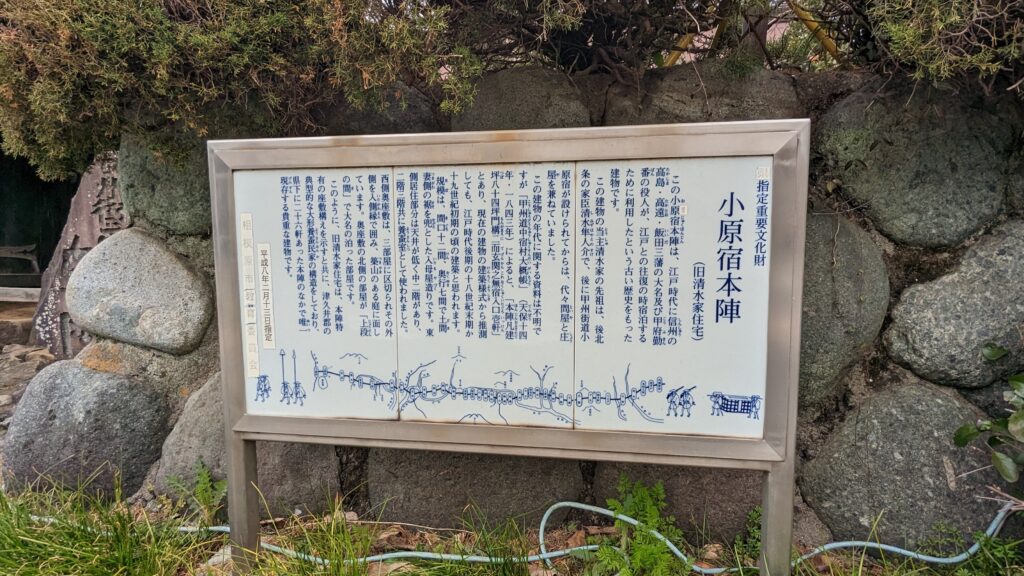 指定重要文化財
小原宿本陣
(旧清水家住宅)
この小原宿本陣は、江戸時代に信州の
高島、高遠、飯田三藩の大名及び甲府勤
番の役人が、江戸との往復の時宿泊する
ために利用したという古い歴史をもった
建物です。
この建物の当主清水家の先祖は、後北
条の家臣清水隼人介で、後に甲州街道小
原宿が設けられてからは、代々問屋と庄
屋を兼ねていました。
この建物の年代に関する資料は不明で
すが「甲州道中宿村大概帳」(天保十四
年・一八四三年)によると、「本陣凡建
坪八十四坪門構二而玄関之無宿八口壱軒」
とあり、現在の建物の建築様式から推測
しても、江戸時代後期の十八世紀末期か
十九世紀初期の頃の建築と思われます。
規模は、間口十二間、奥行七間で上間
妻側の裾を兜とした入母屋造りです。東
側居住部分は天井が低く中二階があり、
二階三階共に養蚕室として使われました。
西側奥座敷は、三部屋に区切られその外
側を入側縁で囲み、築山のある庭に面し
ています。奥座敷の北側の部屋が「上段
の間」で大名の泊った部屋です。
このように、旧清水家住宅は、本陣特
有の座敷構えを示すと共に、津久井郡の
典型的な大形養蚕民家の構造をしており、
県下に二十六軒あった本陣のなかで唯一
現存する貴重な建物です。
平成八年二月十三日指定
相模原市教育委員会